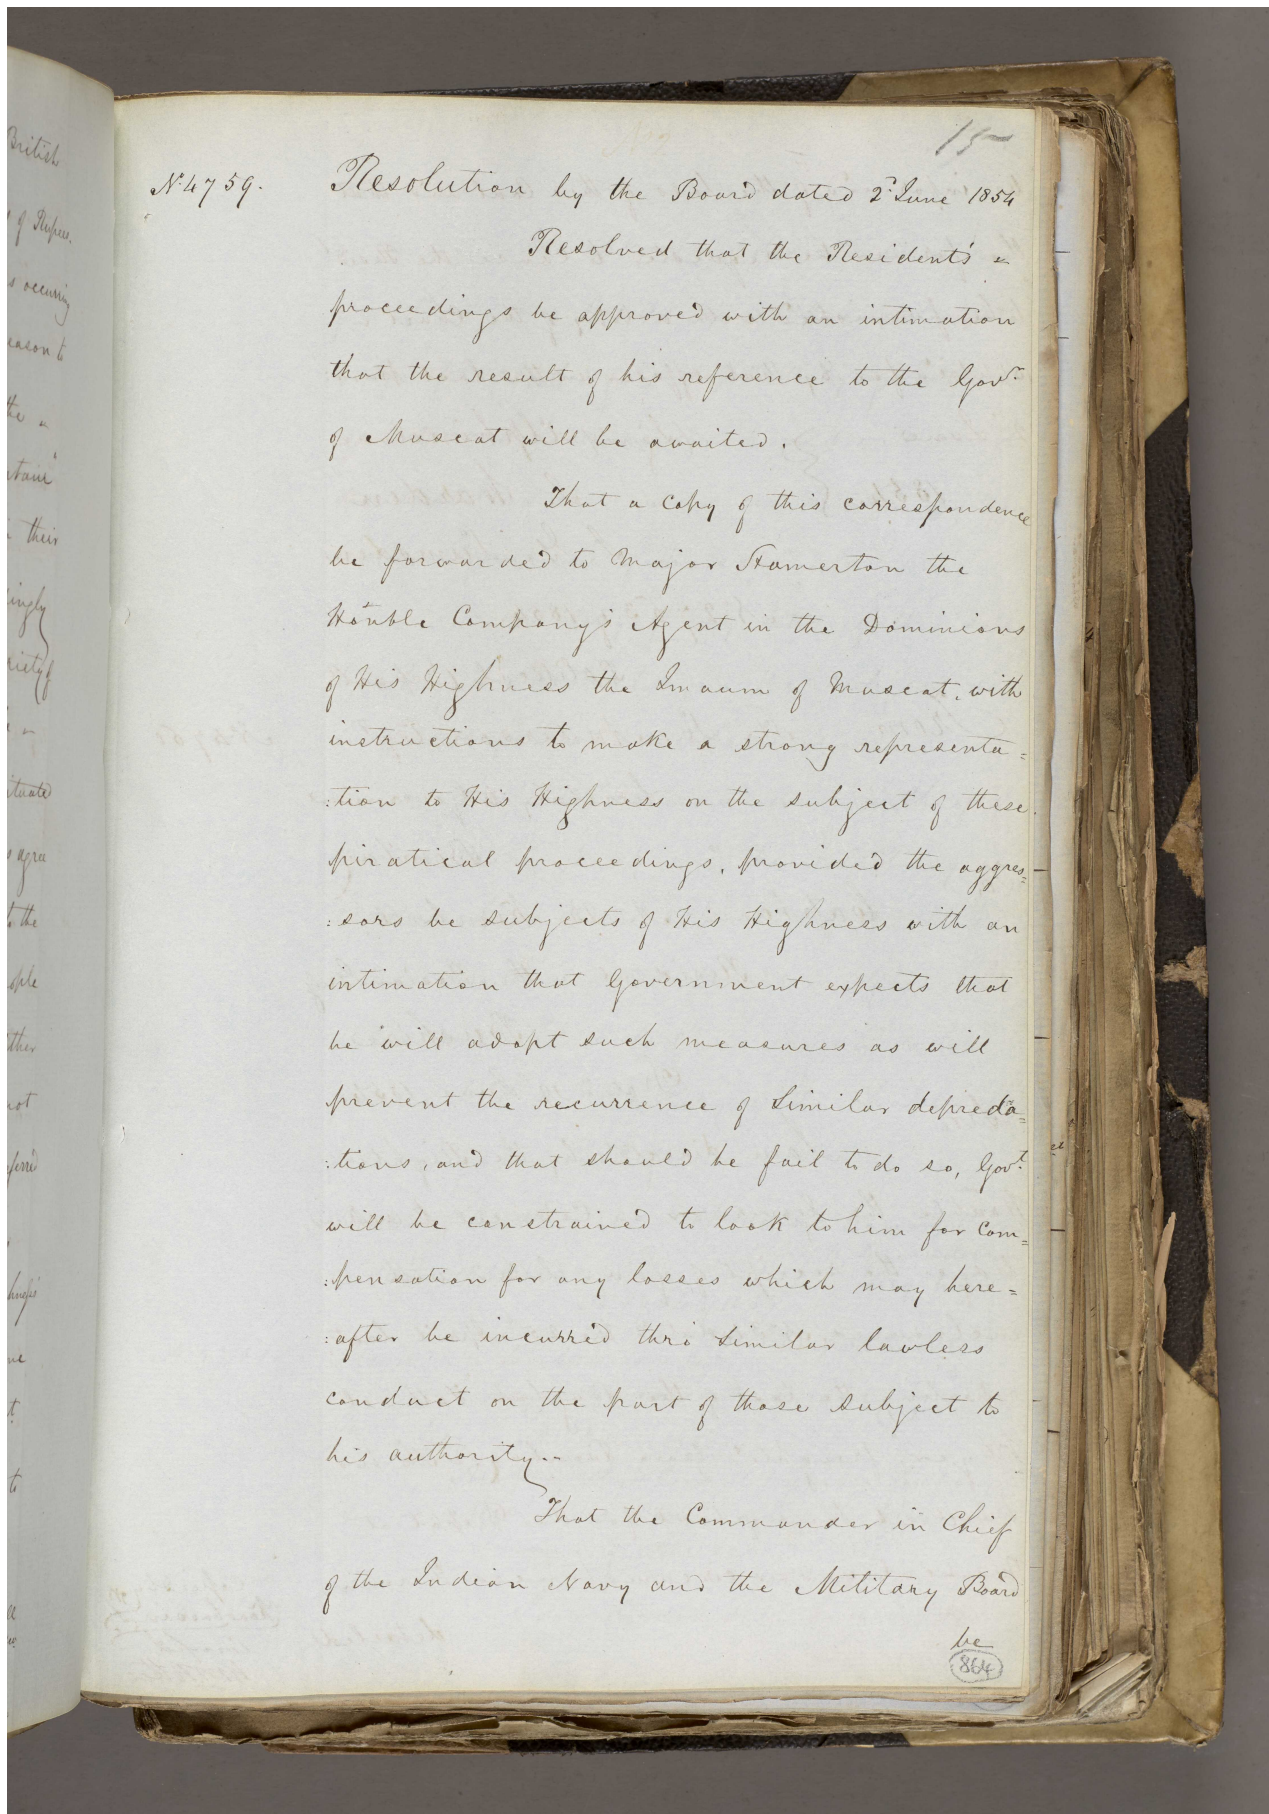 15
No. 4759.
Resolution by the Board dated 2d. June 1854
Resolved that the Resident's
proceedings be approved with an intimation
that the result of his reference to the Govr.
of Muscat will be awaited.
That a copy of this correspondence
be forwarded to Major Hamerton the
Honble Company's Agent in the Dominions
of His Highness the Imaum of Muscat, with
instructions to make a strong representa=
:tion to His Highness on the subject of these
piratical proceedings, provided the aggres=
:sors be subjects of His Highness with an
intimation that Government expects that
he will adopt such measures as will
prevent the recurrence of similar depreda=
:tions, and that should he fail to do so, Govt.
will be constrained to look to him for com=
:pensation for any losses which may here=
:after be incurred thro similar lawless
conduct on the part of those subject to
his authority..
That the Commander in Chief
of the Indian Navy and the Military Board
be
864
British
of Rupees.
occurring
the
their
the
not
to